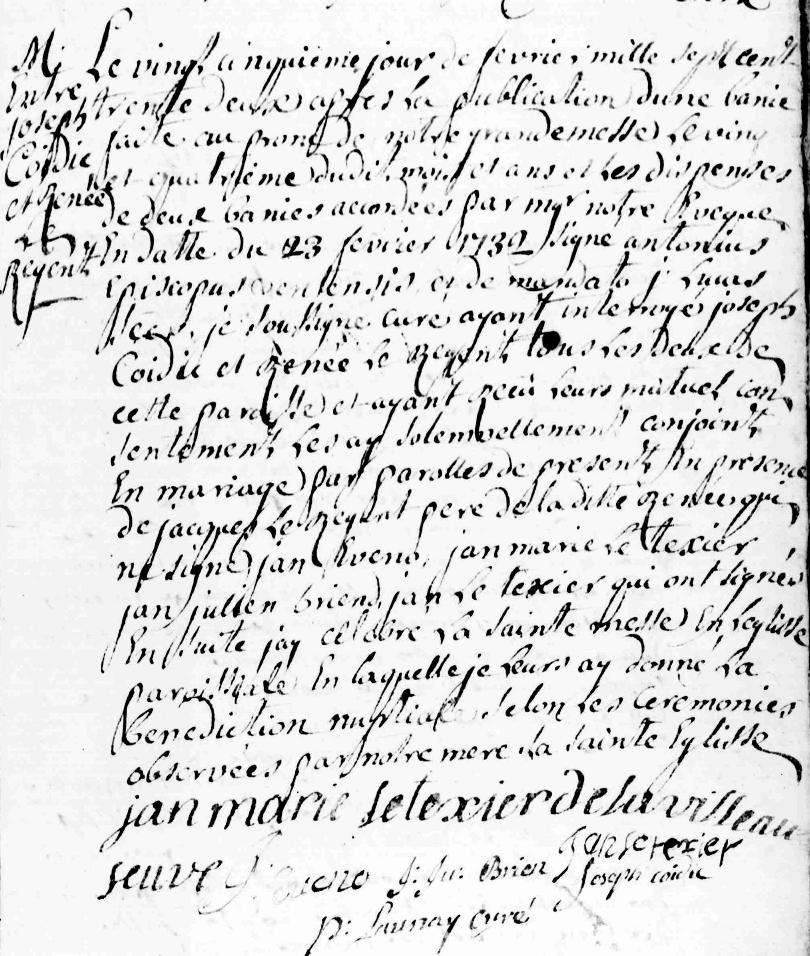 Mj
Entre
joseph
Coidic
et Renée
Le
Regent
Le vingt cinquieme jour de fevrier mille sept cent
trente deux apres La publication dune banie
faite au prone de notre grande messe Le ving
et quatrieme dudit mois et ans et Les dispenses
de deux banies accordées par mgr notre Eveque
En datte du 23 fevrier 1732 signe antonius
Episcopus venetensis et de mandato j Lucas
je soussigne curé ayant interrogés joseph
Coidic et Renée Le Regent tous Les deux de
cette paroisse et ayant reçu Leurs mutuel con
sentement Les ay solemnellement conjoint
En mariage par parolles de present En presence
de jacques Le Regent pere de la ditte Renée qui
ne signe jan Eveno, jan marie le texier
jan julien briend jan Le texier qui ont signés
En suite jay célébre La sainte messe En Leglisse
paroissiale En laquelle je Leurs ay donné La
benediction nuptiale selon Les Ceremonies
observées par notre mere La sainte Eglisse
jan marie letexier de la villeau
neuve J: Eveno J: Ju: Brien Jan le texier
Joseph coidic
p: Launay curé